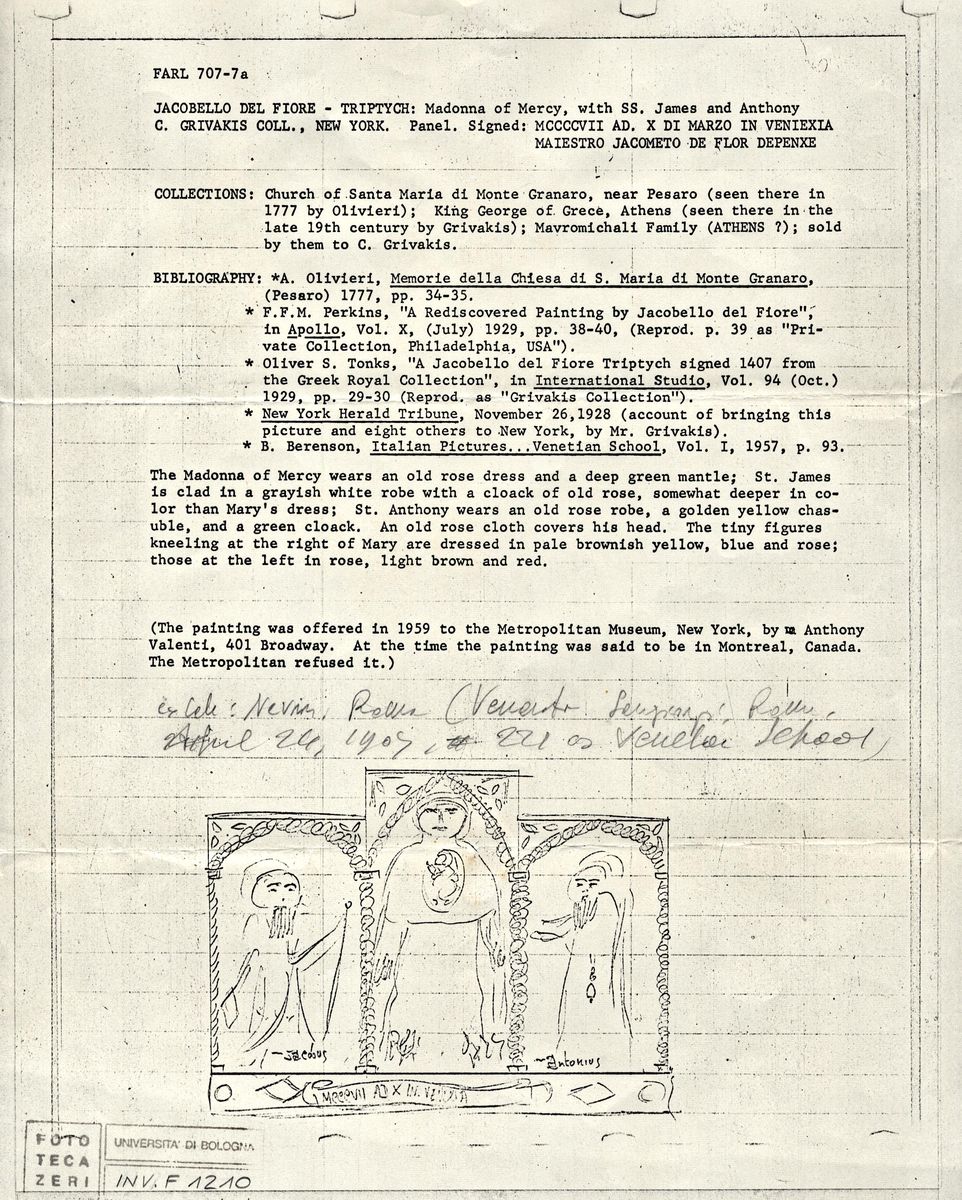 FARL 707-7a
JACOBELLO DEL FIORE - TRIPTYCH: Madonna of Mercy, with SS. James and Anthony
C. GRIVAKIS COLL., NEW YORK. Panel. Signed: MCCCCVII AD. X DI MARZO IN VENIEXIA
MAIESTRO JACOMETO DE FLOR DEPENXE
COLLECTIONS: Church of Santa Maria di Monte Granaro, near Pesaro (seen there in
1777 by Olivieri); King George of Grece, Athens (seen there in the
late 19th century by Grivakis); Mavromichali Family (ATHENS ?); sold
by them to C. Grivakis.
BIBLIOGRAPHY: *A. Olivieri, Memorie della Chiesa di S. Maria di Monte Granaro,
(Pesaro) 1777, pp. 34-35.
* F.F.M. Perkins, "A Rediscovered Painting by Jacobello del Fiore",
in Apollo, Vol. X, (July) 1929, pp. 38-40, (Reprod. p. 39 as "Pri-
vate Collection, Philadelphia, USA").
* Oliver S. Tonks, "A Jacobello del Fiore Triptych signed 1407 from
the Greek Royal Collection", in International Studio, Vol. 94 (Oct.)
1929, pp. 29-30 (Reprod. as "Grivakis Collection").
* New York Herald Tribune, November 26,1928 (account of bringing this
picture and eight others to New York, by Mr. Grivakis).
* B. Berenson, Italian Pictures...Venetian School, Vol. I, 1957, p. 93.
The Madonna of Mercy wears an old rose dress and a deep green mantle; St. James
is clad in a grayish white robe with a cloack of old rose, somewhat deeper in co-
lor than Mary's dress; St. Anthony wears an old rose robe, a golden yellow chas-
uble, and a green cloack. An old rose cloth covers his head. The tiny figures
kneeling at the right of Mary are dressed in pale brownish yellow, blue and rose;
those at the left in rose, light brown and red.
(The painting was offered in 1959 to the Metropolitan Museum, New York, by Anthony
Valenti, 401 Broadway. At the time the painting was said to be in Montreal, Canada.
The Metropolitan refused it.)
Nevin, Roma (Roma,
April 1907, # 221 as Venetian School)
Jacobus
Antonius
MCCCCVII AD X IN
FOTO
TECA
ZERI
UNIVERSITA' DI BOLOGNA
INV. F 1210